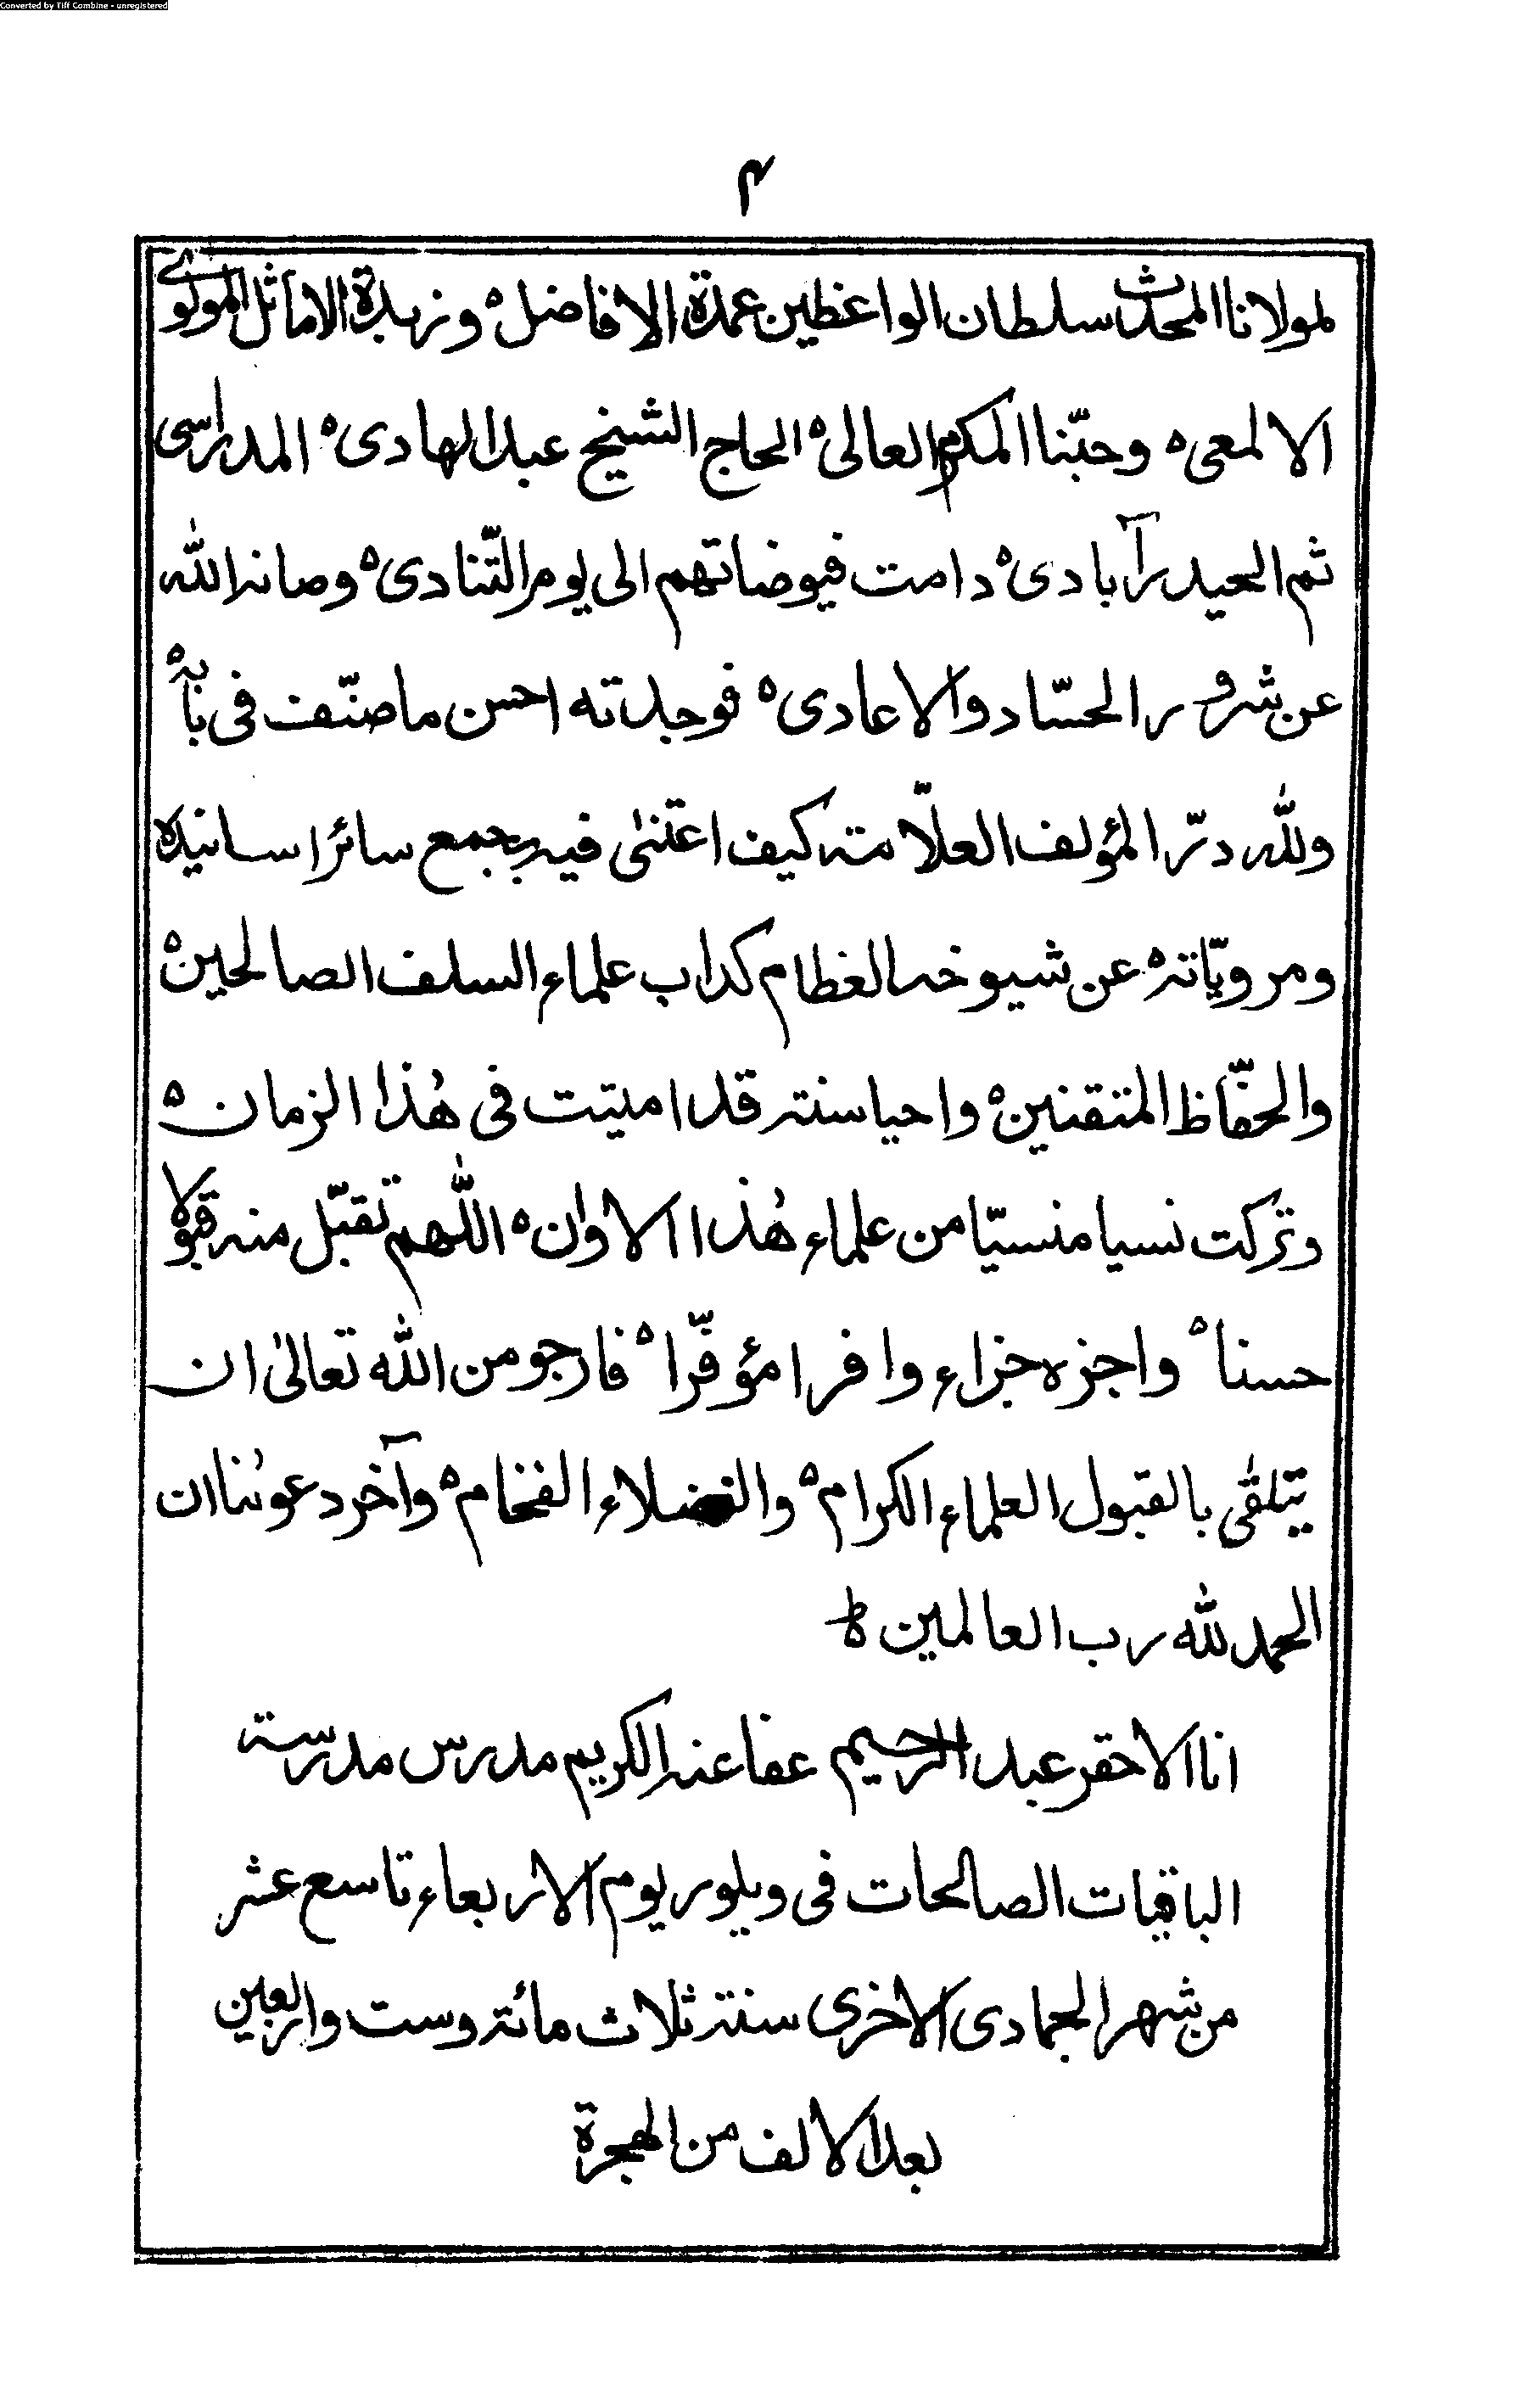 Converted by Tiff Combine - unregistered
۴
لمولانا المحدث سلطان الواعظين عمدة الافاضل ٥ وزبدة الاماثل المولوى
الالمعى ٥ وحبّنا المكرم العالى ٥ الحاج الشيخ عبد الهادى ٥ المدراسى
ثم الحيدرآبادى ٥ دامت فيوضاتهم الى يوم التّنادى ٥ وصانه الله
عن شرور الحسّاد والاعادى ٥ فوجدته احسن ما صنّف فى بابه ٥
ولله درّ المؤلف العلّامة كيف اعتنىٰ فيه بجمع سائر اسانيده
ومرويّاته ٥ عن شيوخه العظام كداب علماء السلف الصالحين ٥
والحفّاظ المتقنين ٥ واحيا سنة قد اميتت فى هٰذا الزمان ٥
وتركت نسيا منسيّا من علماء هٰذا الاوان ٥ اللّٰهم تقبّل منه قبولا
حسنا ٥ واجزه جزاء وافرا مؤفّرا ٥ فارجو من الله تعالىٰ ان
يتلقٰى بالقبول العلماء الكرام ٥ والفضلاء الفخام ٥ وآخر دعوٰنا ان
الحمد لله رب العالمين ط
انا الاحقر عبد الرحيم عفا عنه الكريم مدرس مدرسة
الباقيات الصالحات فى ويلور يوم الاربعاء تاسع عشر
من شهر الجمادى الاخرى سنة ثلاث مائة وست واربعين
بعد الالف من الهجرة